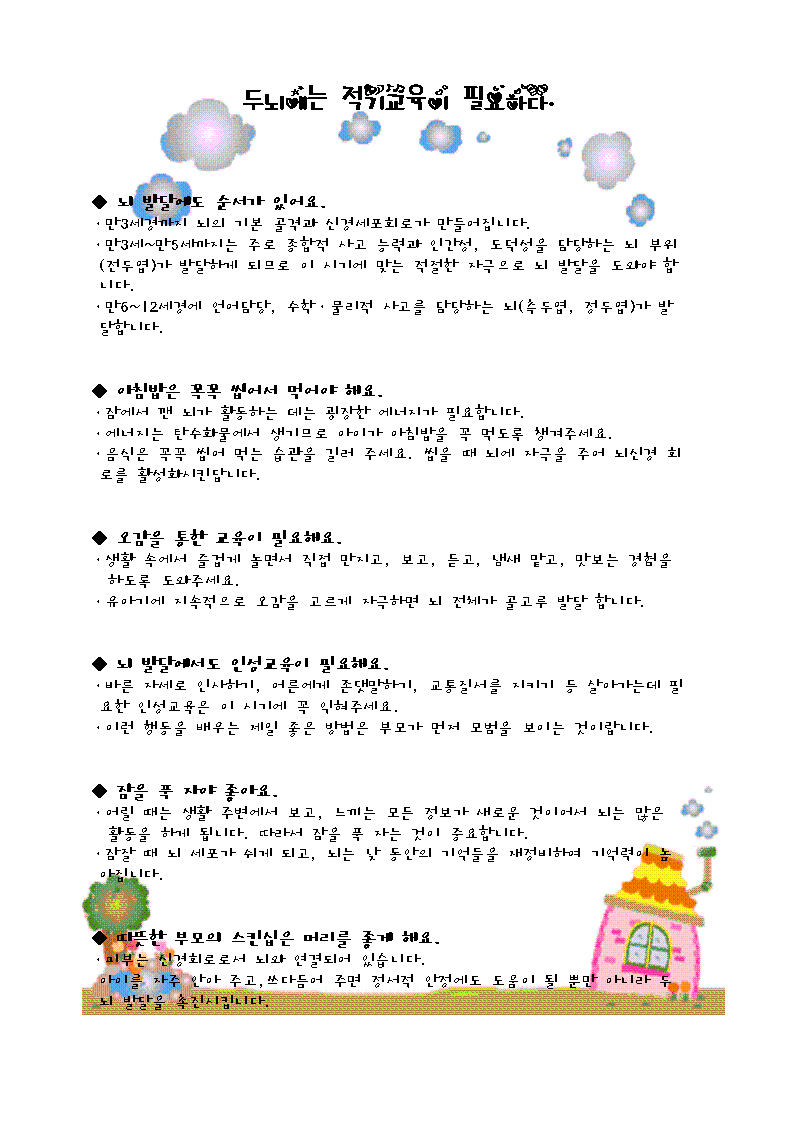 두뇌에는 적기교육이 필요하다.
◆ 뇌 발달에도 순서가 있어요.
·만3세경까지 뇌의 기본 골격과 신경세포회로가 만들어집니다.
·만3세~만6세까지는 주로 종합적 사고 능력과 인간성, 도덕성을 담당하는 뇌 부위
(전두엽)가 발달하게 되므로 이 시기에 맞는 적절한 자극으로 뇌 발달을 도와야 합
니다.
·만6~12세경에 언어담당, 수학·물리적 사고를 담당하는 뇌(측두엽, 정두엽)가 발
달합니다.
◆ 아침밥은 꼭꼭 씹어서 먹어야 해요.
·잠에서 깬 뇌가 활동하는 데는 굉장한 에너지가 필요합니다.
·에너지는 탄수화물에서 생기므로 아이가 아침밥을 꼭 먹도록 챙겨주세요.
·음식은 꼭꼭 씹어 먹는 습관을 길러 주세요. 씹을 때 뇌에 자극을 주어 뇌신경 회
로를 활성화시킨답니다.
◆ 오감을 통한 교육이 필요해요.
·생활 속에서 즐겁게 놀면서 직접 만지고, 보고, 듣고, 냄새 맡고, 맛보는 경험을
하도록 도와주세요.
·유아기에 지속적으로 오감을 고르게 자극하면 뇌 전체가 골고루 발달 합니다.
◆ 뇌 발달에서도 인성교육이 필요해요.
·바른 자세로 인사하기, 어른에게 존댓말하기, 교통질서를 지키기 등 살아가는데 필
요한 인성교육은 이 시기에 꼭 익혀주세요.
·이런 행동을 배우는 제일 좋은 방법은 부모가 먼저 모범을 보이는 것이랍니다.
◆ 잠을 푹 자야 좋아요.
·어릴 때는 생활 주변에서 보고, 느끼는 모든 정보가 새로운 것이어서 뇌는 많은
활동을 하게 됩니다. 따라서 잠을 푹 자는 것이 중요합니다.
·잠잘 때 뇌 세포가 쉬게 되고, 뇌는 낮 동안의 기억들을 재정비하여 기억력이 높
아집니다.
◆ 따뜻한 부모의 스킨십은 머리를 좋게 해요.
·피부는 신경회로로서 뇌와 연결되어 있습니다.
아이를 자주 안아 주고,쓰다듬어 주면 정서적 안정에도 도움이 될 뿐만 아니라 두
뇌 발달을 촉진시킵니다.